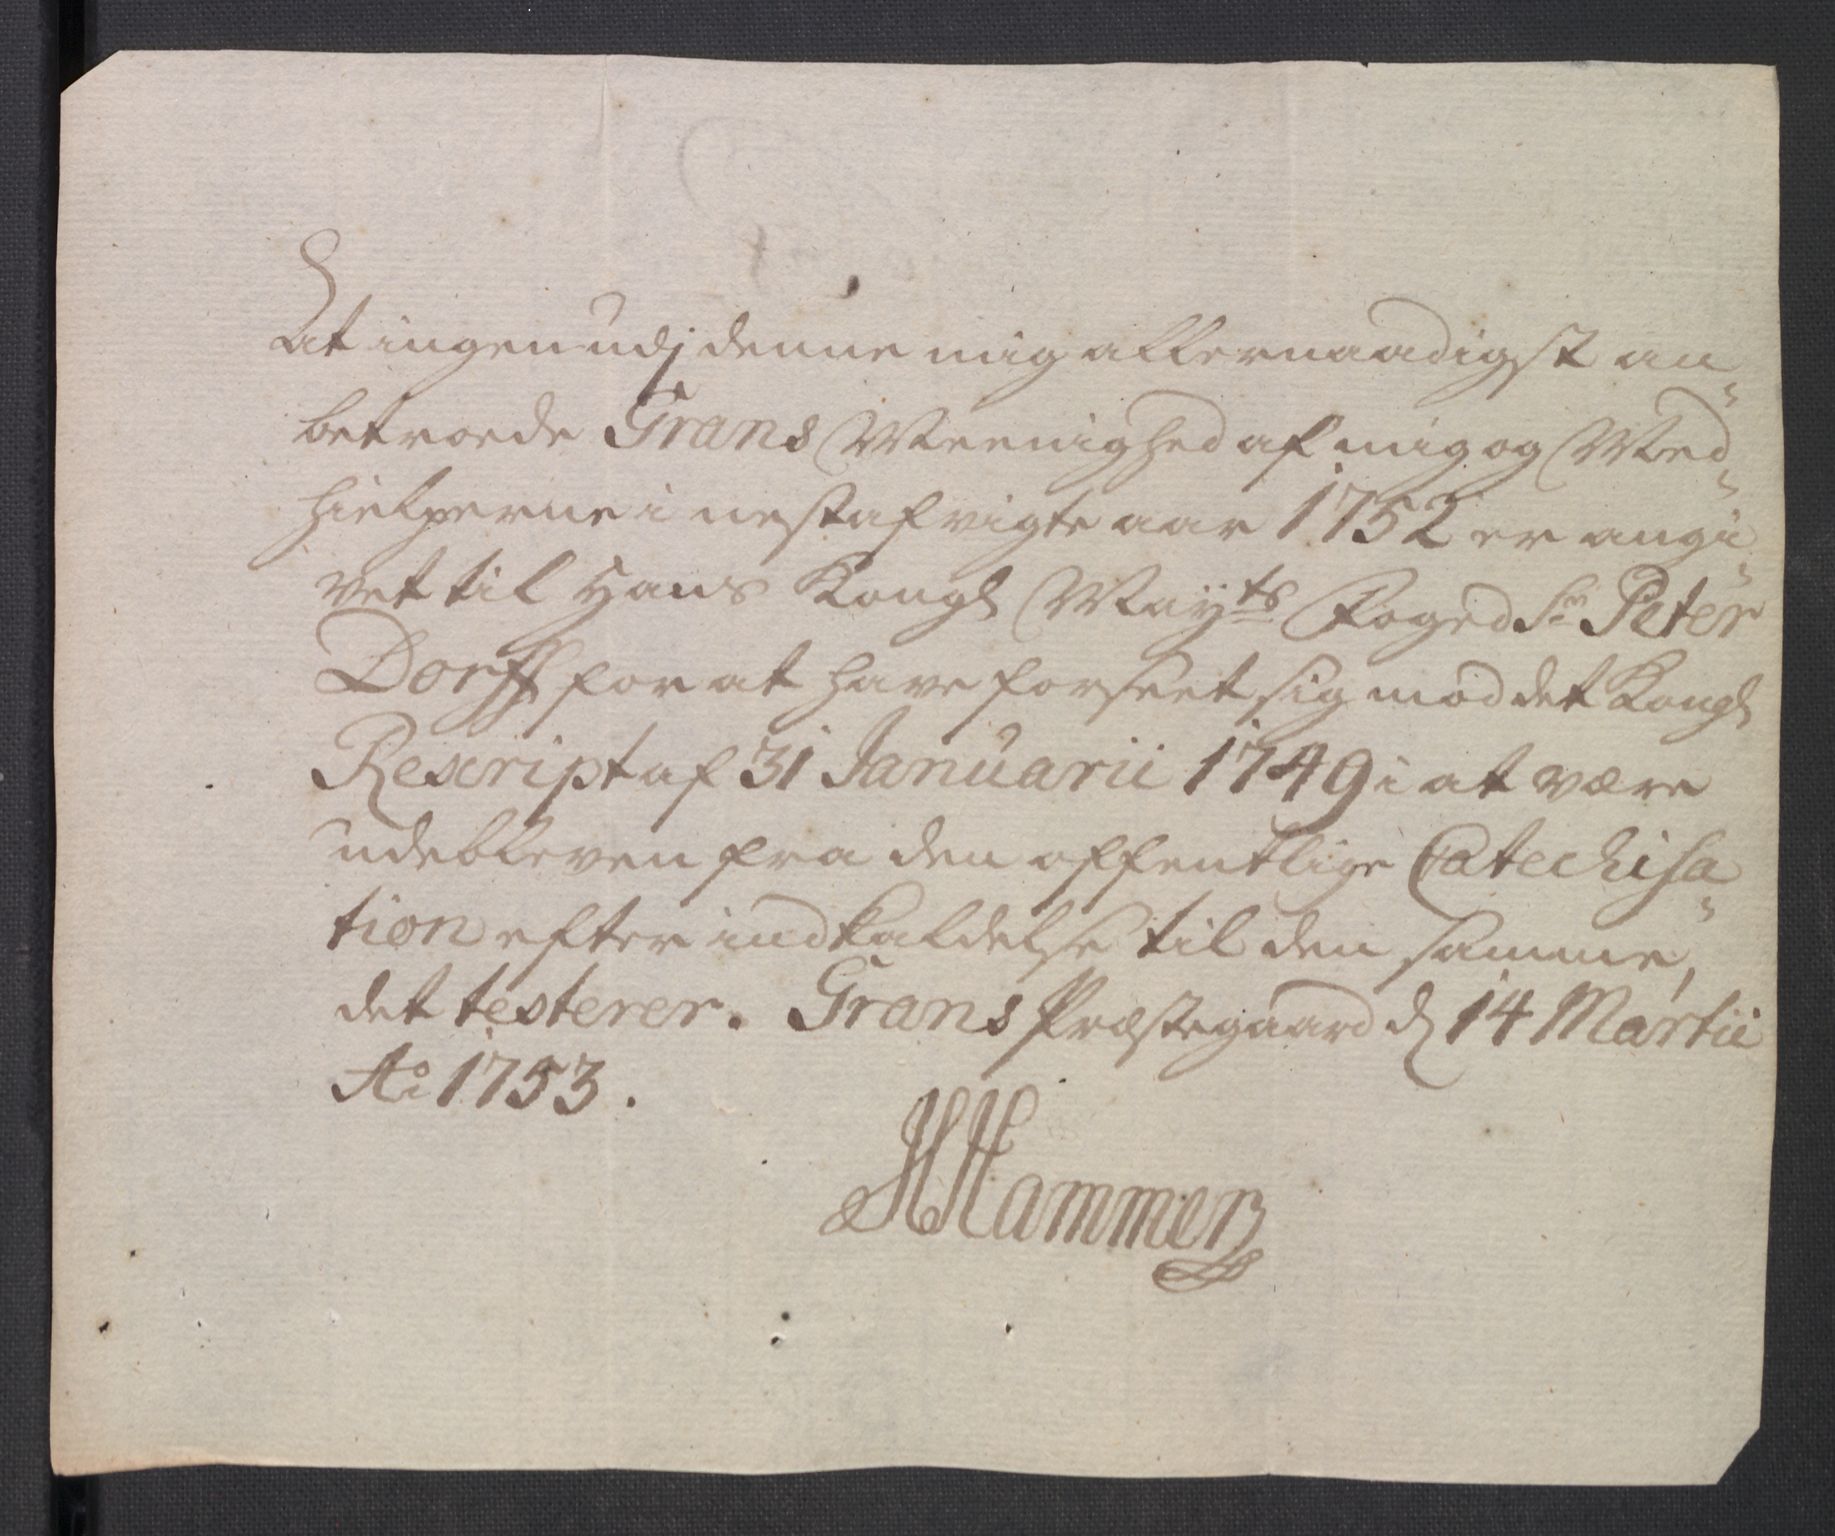 At ingen udj denne mig allernaadigst an-
betroede Grans Meenighed af mig og Med-
hielperne i nestafvigte aar 1752 er angi-
vet til Hans Kongl Mayts Foged Sr Peter
Dorff for at have forseet sig mod det Kongl
Rescript af 31 Januarii 1749 i at være
udebleven fra den offentlige Catechisa-
tion efter indkaldelse til den samme,
det testerer. Grans Præstegaard d 14 Martii
Ao 1753.
HHammer